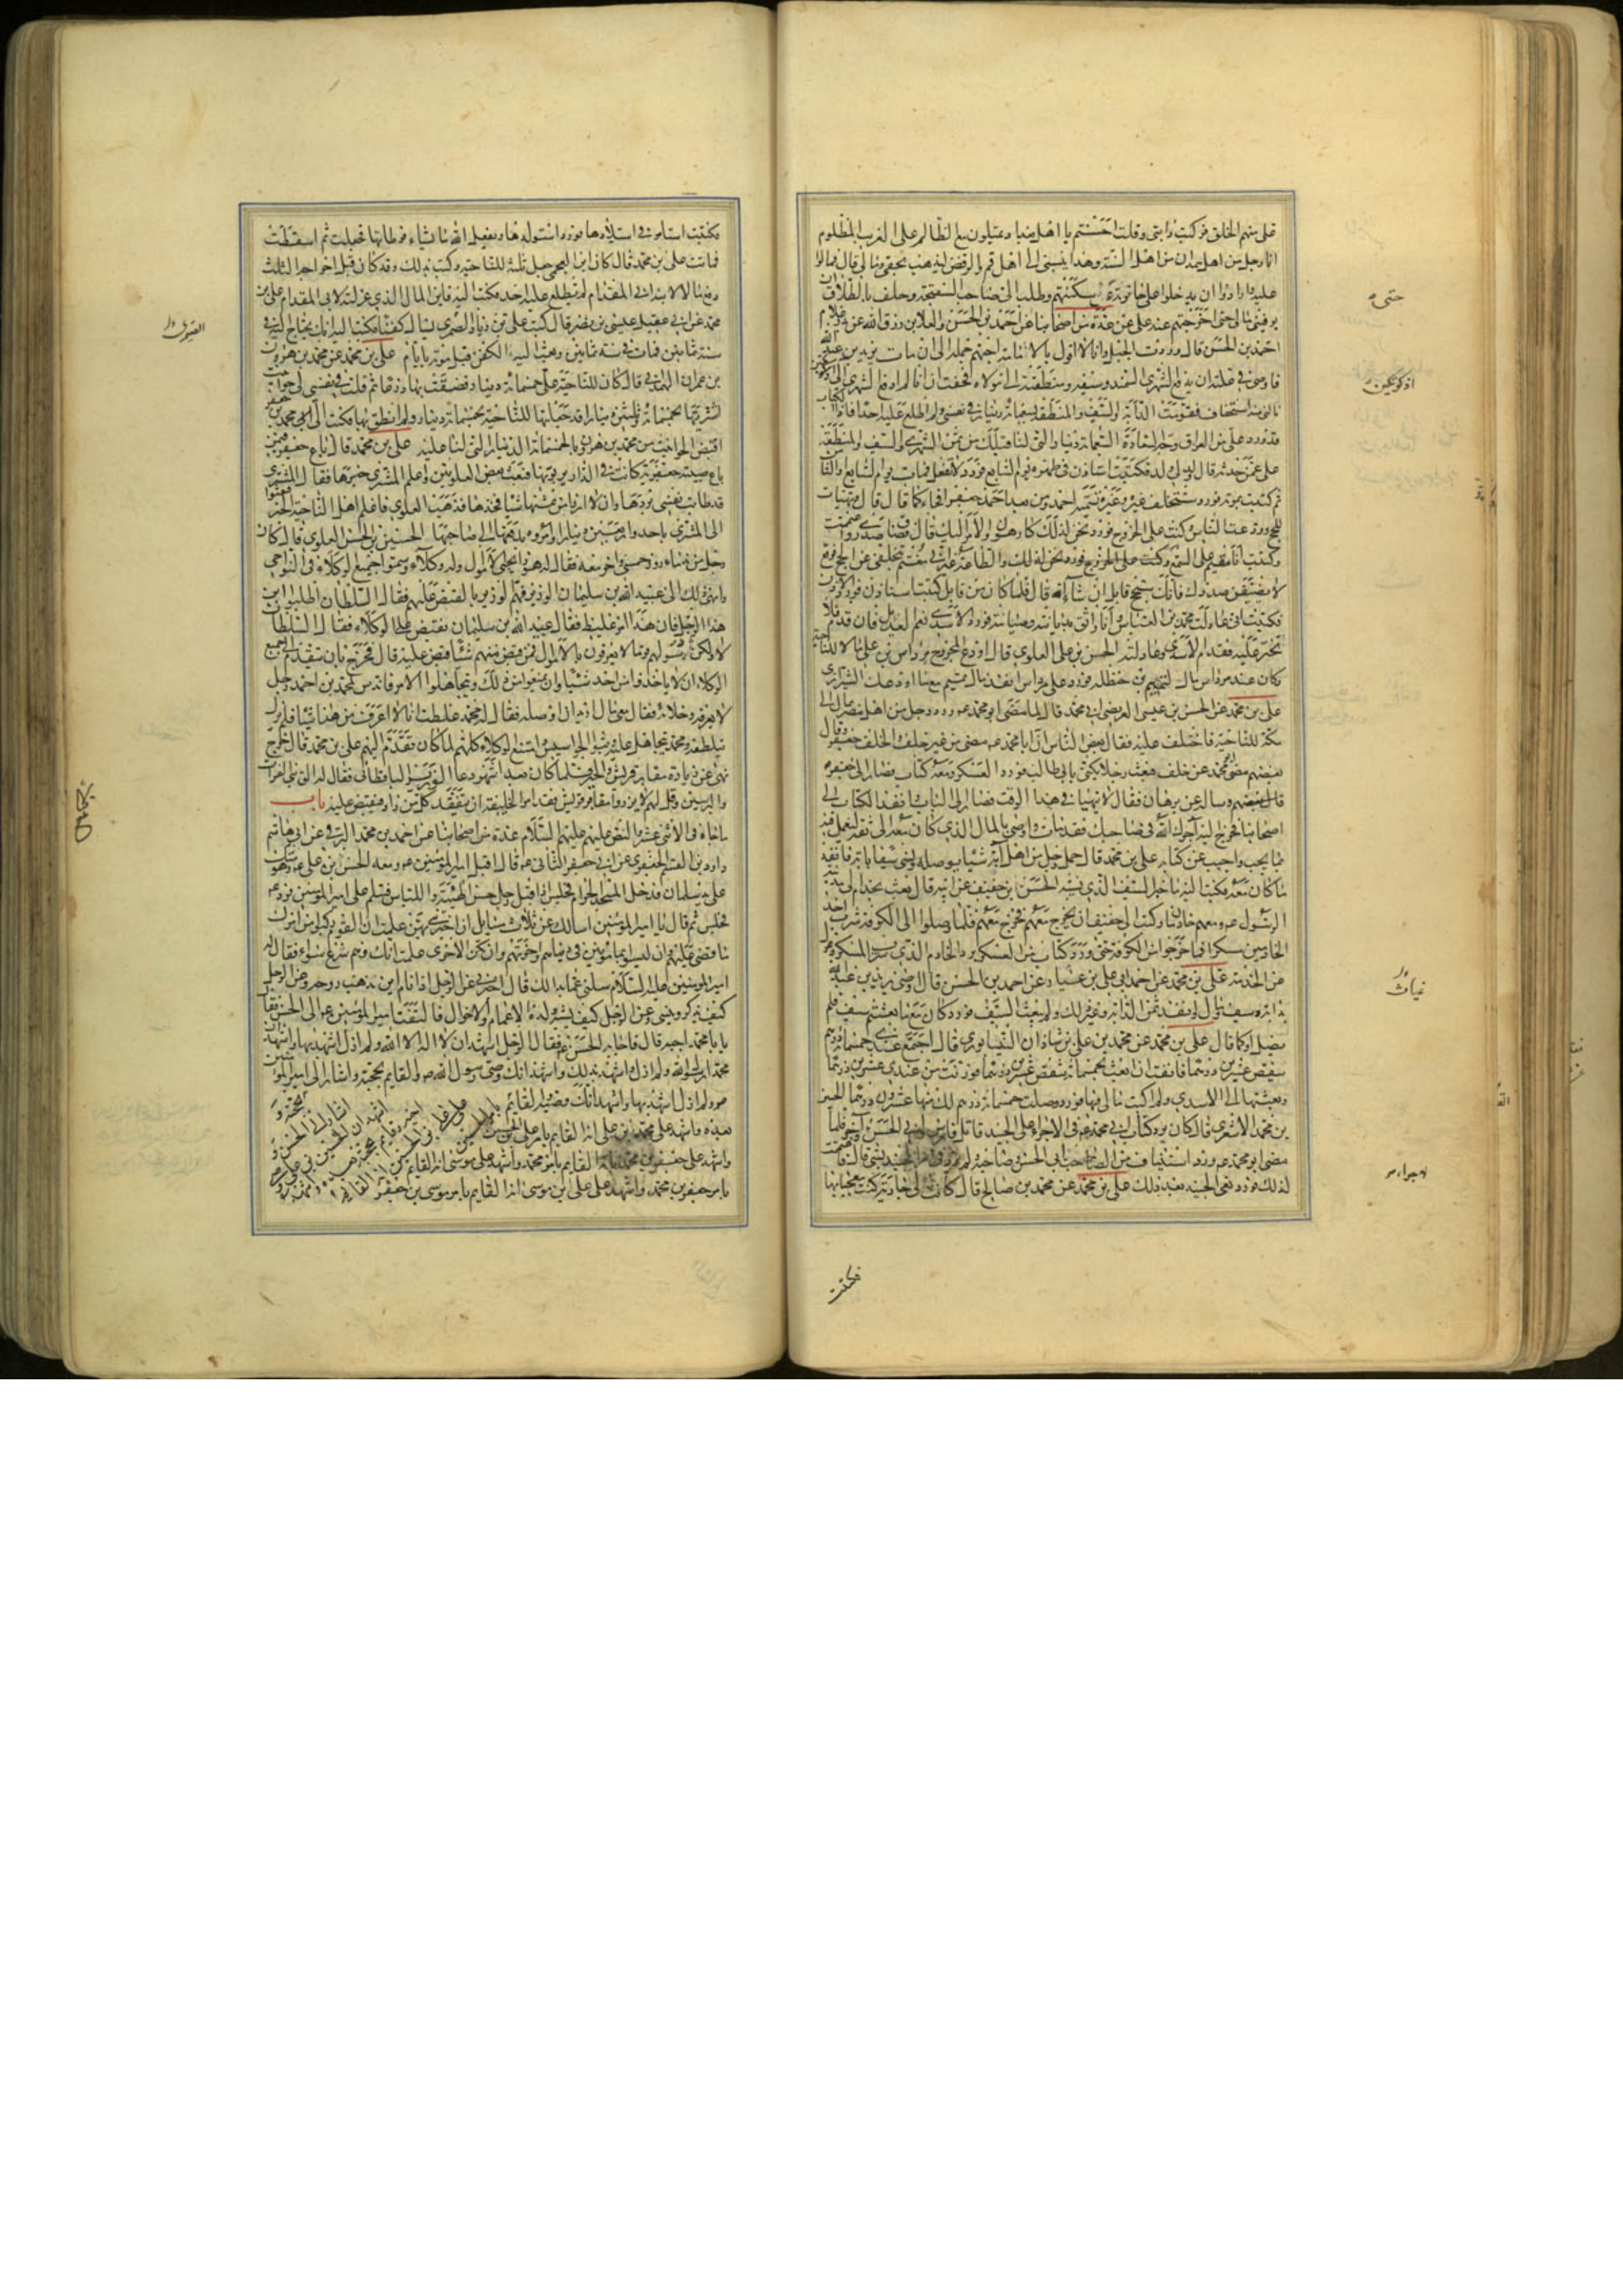 على منهم الخلق فركبت دابتى وقلت احسنتم يا اهل بغداد تميلون مع الظالم على الغريب المظلوم
انا رجل من اهل همدان من اهل السنة وهذا ينسبنى الى اهل قم بالرفض ليذهب بحقى ومالى قال فمالوا
عليه وارادوا ان يدخلوا على حانوته حتى سكنتهم وطلب الى صاحب السفتجة وحلف بالطلاق ان
يوفينى مالى حتى اخرجتهم عنه على عن عدة من اصحابنا عن احمد بن الحسن والعلا بن رزق الله عن بدر غلام
احمد بن الحسن قال وردت الجبل وانا لا اقول بالامامة احبهم جملة الى ان مات يزيد بن عبد الله
فاوصى فى علته ان يدفع الشهرى السمند وسيفه ومنطقته الى مولاه فخفت ان انا لم ادفع الشهرى الى اذكوتكين
نالنى منه استخفاف فقومت الدابة والسيف والمنطقة بسبعمائة دينار فى نفسى ولم اطلع عليه احدا فاذا الكتاب
قد ورد على من العراق وجه السبعمائة دينار التى لنا قبلك من ثمن الشهرى والسيف والمنطقة
على عمن حدثه قال ولد لى ولد فكتبت استاذن فى طهره يوم السابع فورد لا تفعل فمات يوم السابع والثامن
ثم كتبت بموته فورد ستخلف غيره وغيره تسميه احمد ومن بعد احمد جعفر فجاء كما قال قال وتهيأت
للحج وودعت الناس وكنت على الخروج فورد نحن لذلك كارهون والامر اليك قال فضاق صدرى واغتممت
وكتبت انا مقيم على السمع وكنت على الخروج فورد نحن لذلك والطاعة غير انى مغتم بتخلفى عن الحج فوقع
لا يضيقن صدرك فانك ستحج قابل ان شاء الله قال فلما كان من قابل كتبت استاذن فورد الاذن
فكتبت انى عادلت محمد بن العباس وانا واثق بديانته وصيانته فورد الاسدى نعم العديل فان قدم فلا
تختر عليه فقدم الاسدى وعادلته الحسن بن على العلوى قال اودع المجروح مرداس بن على مالا للناحية
وكان عند مرداس مال لتميم بن حنظلة فورد على مرداس انفذ مال تميم مع ما اودعك الشيرازى
على بن محمد عن الحسن بن عيسى العريضى ابى محمد قال لما مضى ابو محمد عه ورد رجل من اهل مصر بمال الى
مكة للناحية فاختلف عليه فقال بعض الناس ان ابا محمد عه مضى من غير خلف والخلف جعفر وقال
بعضهم مضى ابو محمد عن خلف فبعث رجلا يكنى بابى طالب فورد العسكر ومعه كتاب فصار الى جعفر
وساله عن برهان فقال لا يتهيأ فى هذا الوقت فصار الى الباب وانفذ الكتاب الى
اصحابنا فخرج اليه آجرك الله فى صاحبك فقد مات واوصى بالمال الذى كان معه الى ثقة ليعمل فيه
بما يجب واجيب عن كتابه على بن محمد قال حمل رجل من اهل آبة شيئا يوصله ونسى سيفا بآبة فانفذ
ما كان معه فكتب اليه ما خبر السيف الذى نسيته الحسن بن خفيف عن ابيه قال بعث بخدم الى مدينة
الرسول ص ومعهم خادمان وكتب الى خفيف ان يخرج معهم فخرج معهم فلما وصلوا الى الكوفة شرب احد
الخادمين مسكرا فما خرجوا من الكوفة حتى ورد كتاب من العسكر برد الخادم الذى شرب المسكر وعزل
عن الخدمة على بن محمد عن احمد بن ابى على بن غياث عن احمد بن الحسن قال اوصى يزيد بن عبد الله
بدابة وسيف ومال وانفذ ثمن الدابة وغير ذلك ولم يبعث السيف فورد كان مع ما بعثتم سيف فلم
يصل او كما قال على بن محمد عن محمد بن على بن شاذان النيسابورى قال اجتمع عندى خمسمائة درهم
ينقص عشرين درهما فانفت ان ابعث بخمسمائة ينقص عشرين درهما فوزنت من عندى عشرين درهما
وبعثتها الى الاسدى ولم اكتب مالى فيها فورد وصلت خمسمائة درهم لك منها عشرون درهما الحسين
بن محمد الاشعرى قال كان يرد كتاب ابى محمد عه فى الاجراء على الجنيد قاتل فارس وابى الحسن وآخر فلما
مضى ابو محمد عه ورد استيناف من الصاحب لاجراء ابى الحسن وصاحبه ولم يرد فى امر الجنيد بشئ قال فاغتممت
لذلك فورد نعى الجنيد بعد ذلك على بن محمد عن محمد بن صالح قال كانت لى جارية كنت معجبا بها
فكتبت
حتى
اذكوتكين
غياث
لاجراء
فكتبت استامر فى استيلادها فورد استولدها ويفعل الله ما يشاء فوطأتها فحبلت ثم اسقطت
فماتت على بن محمد قال كان ابن العجمى جعل ثلثه للناحية وكتب بذلك وقد كان قبل اخراجه الثلث
دفع مالا لابنه ابى المقدام لم يطلع عليه احد فكتب اليه فاين المال الذى عزلته لابى المقدام على بن
محمد عن ابى عقيل عيسى بن نصر قال كتب على بن زياد الصمرى يسأل كفنا فكتب اليه انك تحتاج اليه فى
سنة ثمانين فمات فى سنة ثمانين وبعث اليه بالكفن قبل موته بايام على بن محمد عن محمد بن هرون
بن عمران الهمدانى قال كان للناحية على خمسمائة دينار فضقت بها ذرعا ثم قلت فى نفسى لى حوانيت
اشتريتها بخمسمائة وثلثين دينارا قد جعلتها للناحية بخمسمائة دينار ولم انطق بها فكتب الى محمد بن جعفر
اقبض الحوانيت من محمد بن هرون بالخمسمائة الدينار التى لنا عليه على بن محمد قال باع جعفر فيمن
باع صبية جعفرية كانت فى الدار يربونها فبعث بعض العلويين واعلم المشترى خبرها فقال المشترى
قد طابت نفسى بردها وان لا ارزأ من ثمنها شيئا فخذها فذهب العلوى فاعلم اهل الناحية الخبر فبعثوا
الى المشترى باحد واربعين دينارا وامروه بدفعها الى صاحبها الحسين بن الحسن العلوى قال كان
رجل من ندماء روزحسنى وآخر معه فقال له هو ذا يجبى الاموال وله وكلاء وسموا جميع الوكلاء فى النواحى
وانهى ذلك الى عبيد الله بن سليمان الوزير فهم الوزير بالقبض عليهم فقال السلطان اطلبوا اين
هذا الرجل فان هذا امر غليظ فقال عبيد الله بن سليمان نقبض على الوكلاء فقال السلطان
لا ولكن دسوا لهم قوما لا يعرفون بالاموال فمن قبض منهم شيئا قبض عليه قال فخرج بان يتقدم الى جميع
الوكلاء ان لا ياخذوا من احد شيئا وان يمتنعوا من ذلك ويتجاهلوا الامر فاندس لمحمد بن احمد رجل
لا يعرفه وخلا به فقال معى مال اريد ان اوصله فقال له محمد غلطت انا لا اعرف من هذا شيئا فلم يزل
يتلطفه ومحمد يتجاهل عليه وبثوا الجواسيس وامتنع الوكلاء كلهم لما كان تقدم اليهم على بن محمد قال خرج
نهى عن زيارة مقابر قريش والحير فلما كان بعد اشهر دعا الوزير الباقطانى فقال له الق بنى الفرات
والبرسيين وقل لهم لا يزوروا مقابر قريش فقد امر الخليفة ان يتفقد كل من زار فيقبض عليه باب
ما جاء فى الاثنى عشر والنص عليهم عليهم السلام عدة من اصحابنا عن احمد بن محمد البرقى عن ابى هاشم
داود بن القسم الجعفرى عن ابى جعفر الثانى عه قال اقبل امير المؤمنين عه ومعه الحسن بن على عه وهو متكئ
على يد سلمان فدخل المسجد الحرام فجلس اذا اقبل رجل حسن الهيئة واللباس فسلم على امير المؤمنين فرد عه
فجلس ثم قال يا امير المؤمنين اسالك عن ثلاث مسايل ان اخبرتنى بهن علمت ان القوم ركبوا من امرك
ما قضى عليهم وان ليسوا بمأمونين فى دنياهم وآخرتهم وان تكن الاخرى علمت انك وهم شرع سواء فقال له
امير المؤمنين عليه السلام سلنى عما بدا لك قال اخبرنى عن الرجل اذا نام اين تذهب روحه وعن الرجل
كيف يذكر وينسى وعن الرجل كيف يشبه ولده الاعمام والاخوال فالتفت امير المؤمنين عه الى الحسن فقال
يا با محمد اجبه قال فاجابه الحسن عه فقال الرجل اشهد ان لا اله الا الله ولم ازل اشهد بها واشهد ان
محمدا رسول الله ولم ازل اشهد بذلك واشهد انك وصى رسول الله ص والقايم بحجته واشار الى امير المؤمنين
عه ولم ازل اشهد بها واشهد انك وصيه والقايم بحجته واشار الى الحسن
بعده واشهد على محمد بن على انه القايم بامر على بن الحسين
واشهد على جعفر بن محمد بانه القايم بامر محمد واشهد على موسى انه القايم
بامر جعفر بن محمد واشهد على على بن موسى انه القايم بامر موسى بن جعفر